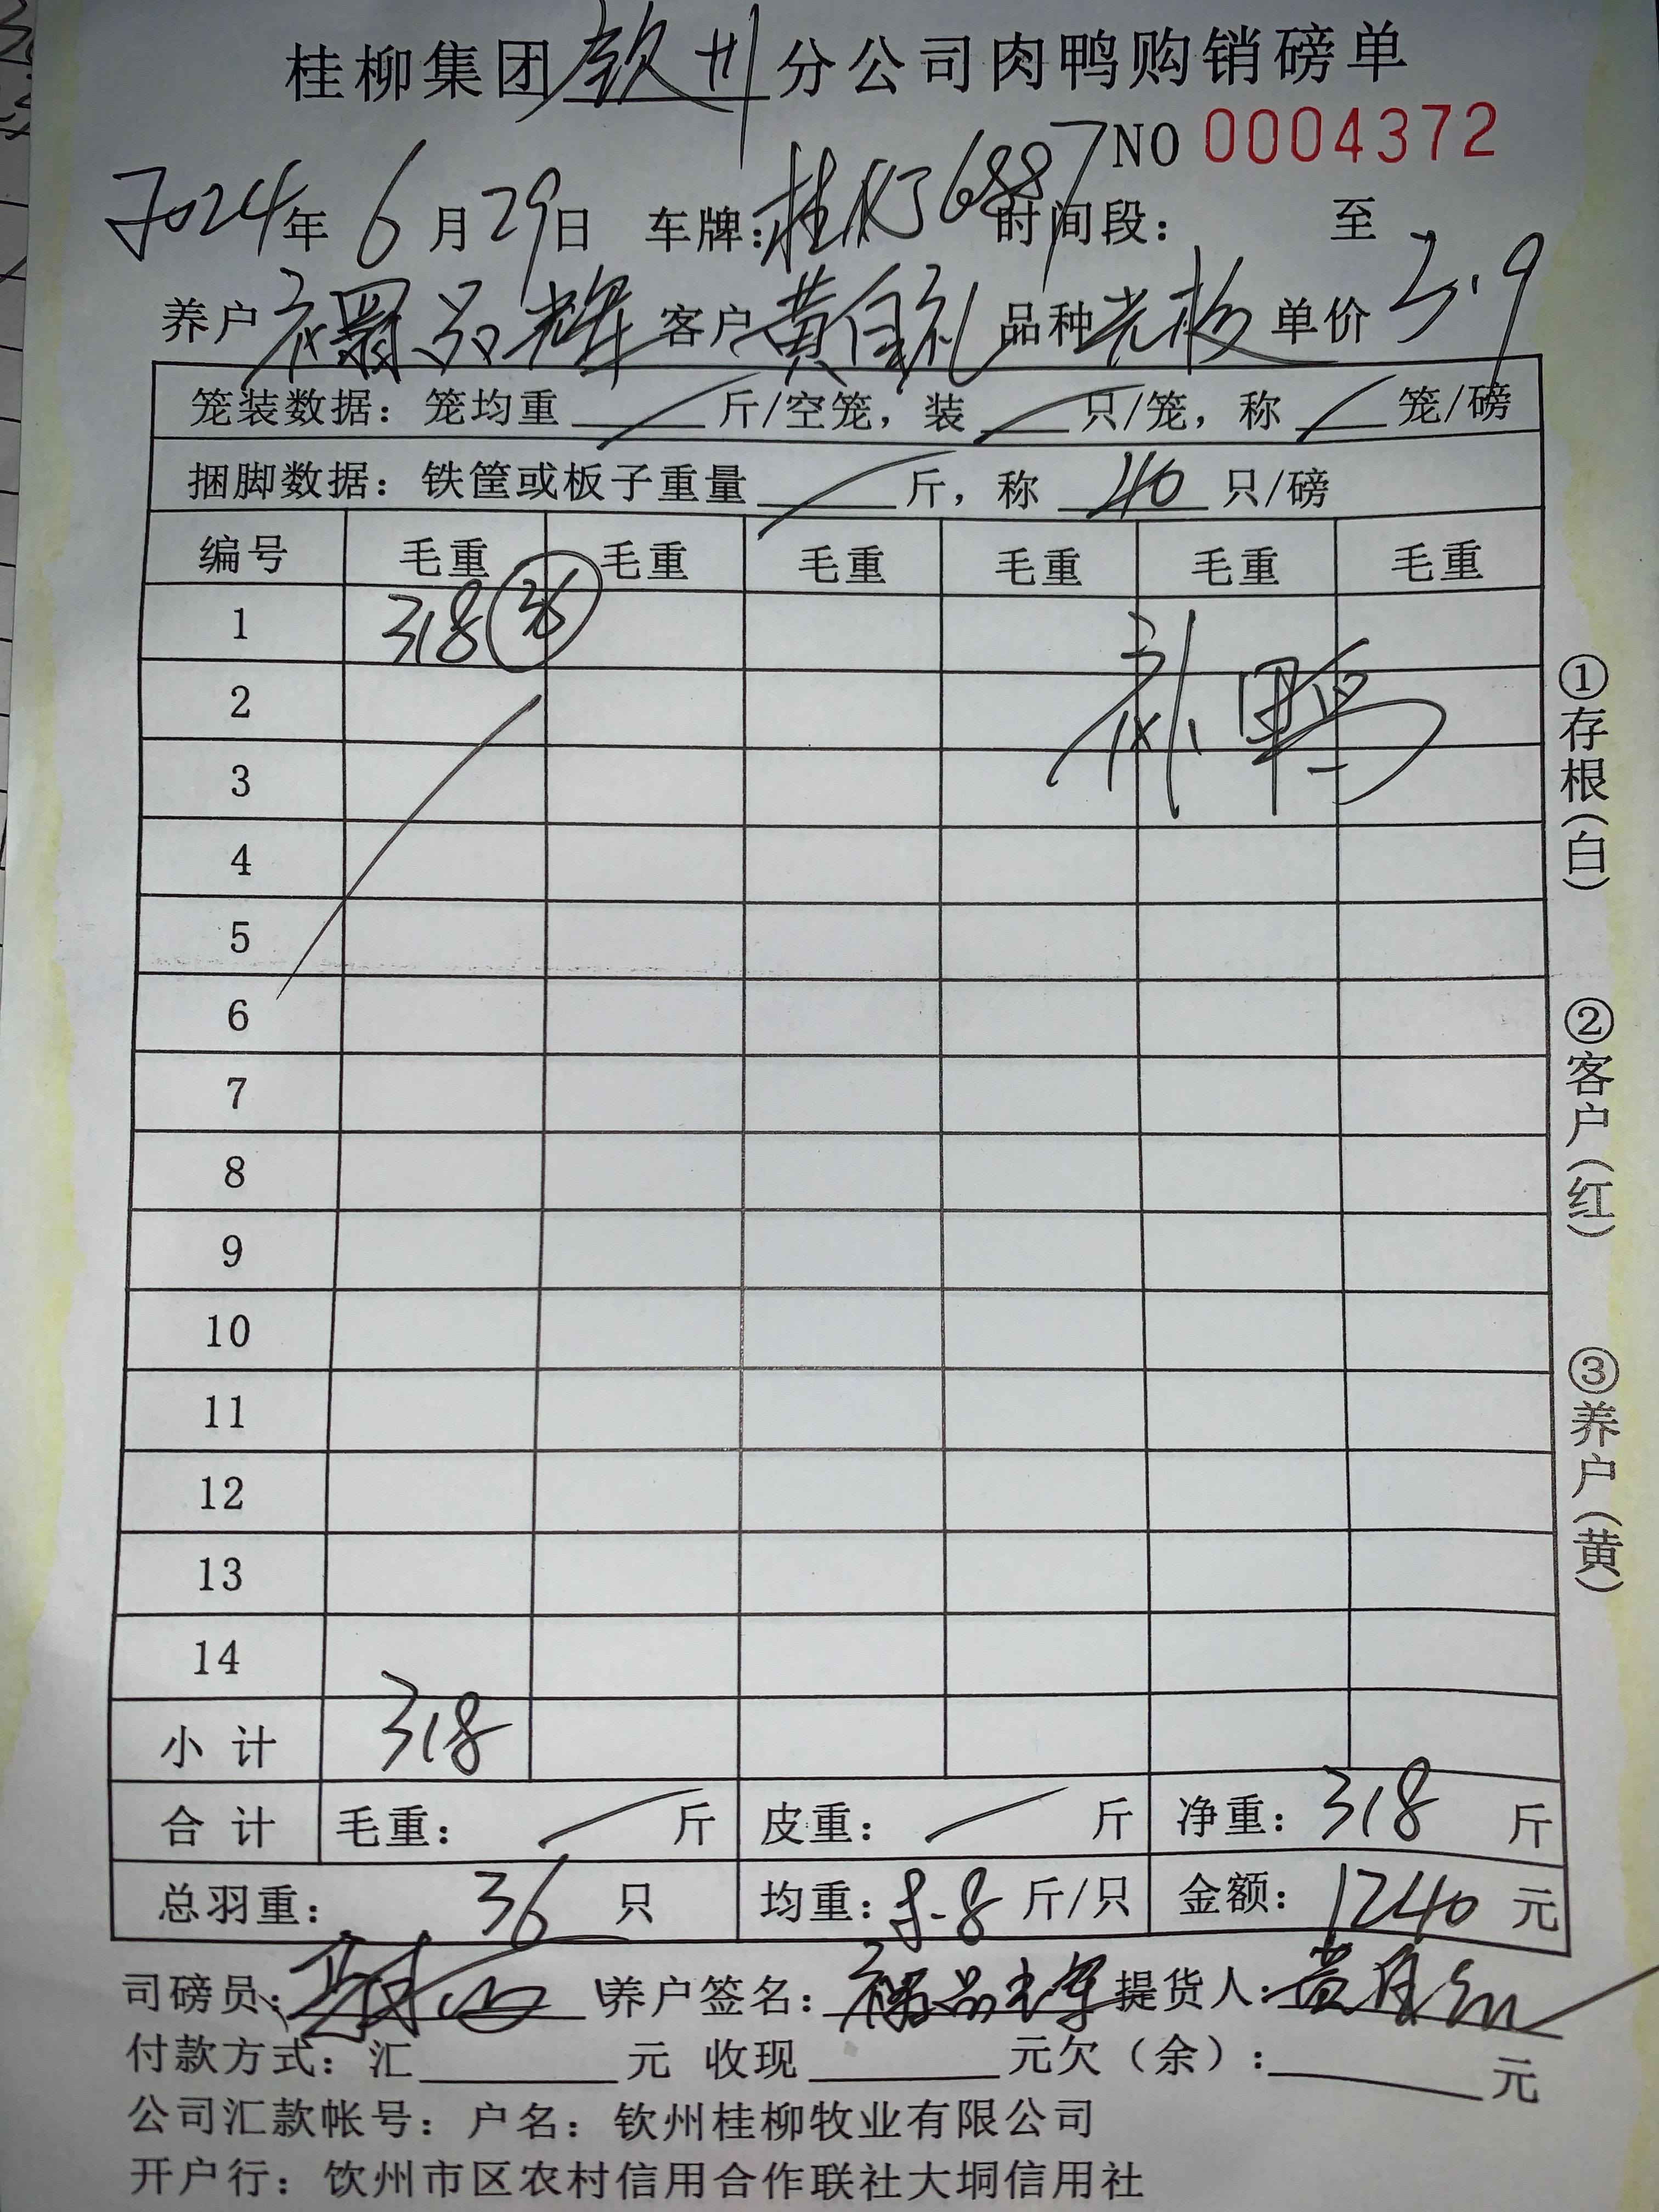 桂柳集团钦州分公司肉鸭购销磅单
NO 0004372
2024年6月29日 车牌:桂 6887 时间段: 至
养户 品辉 客户 黄 礼 品种 老板 单价 3.9
笼装数据: 笼均重 斤/空笼, 装 只/笼, 称 笼/磅
捆脚数据: 铁筐或板子重量 斤, 称 40 只/磅
编号 毛重 毛重 毛重 毛重 毛重 毛重
1 318 36
补鸭
2
3
4
5
6
7
8
9
10
11
12
13
14
小 计 318
合 计 毛重: 斤 皮重: 斤 净重: 318 斤
总羽重: 36 只 均重: 8.8 斤/只 金额: 1240 元
司磅员: 养户签名: 品辉 提货人: 黄
付款方式: 汇 元 收现 元欠(余): 元
公司汇款帐号: 户名: 钦州桂柳牧业有限公司
开户行: 钦州市区农村信用合作联社大垌信用社
①存根(白)
②客户(红)
③养户(黄)